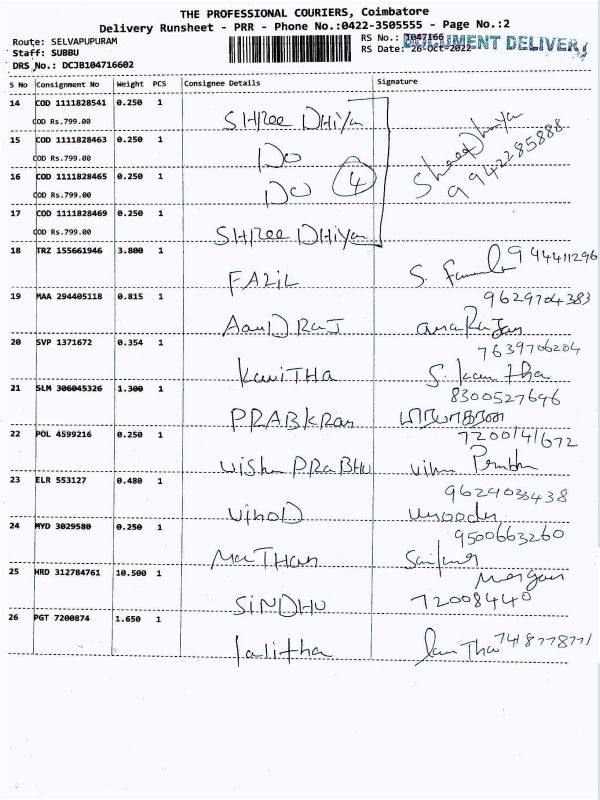 THE PROFESSIONAL COURIERS, Coimbatore
Delivery Runsheet - PRR - Phone No.:0422-3505555 - Page No.:2
Route: SELVAPUPURAM RS No.: 1047166 DOCUMENT DELIVERY
Staff: SUBBU RS Date: 26-Oct-2022
DRS No.: DCJB104716602
S No Consignment No Weight PCS Consignee Details Signature
14 COD 1111828541 0.250 1 SHREE DHIYA
COD Rs.799.00
15 COD 1111828463 0.250 1 DO
COD Rs.799.00
16 COD 1111828465 0.250 1 DO 4 9942285888
COD Rs.799.00
17 COD 1111828469 0.250 1 SHREE DHIYA
COD Rs.799.00
18 TRZ 155661946 3.800 1 FAZIL S. 9 944411296
19 MAA 294405118 0.815 1 9629704383
20 SVP 1371672 0.354 1 KaviTHA 7639706204
21 SLM 306045326 1.300 1 PRABKRan 8300527696
22 POL 4599216 0.250 1 Vishnu PRABHU 7200141672
23 ELR 553127 0.480 1 VinoD 9629035438
24 MYD 3029580 0.250 1 9500663260
25 HRD 312784761 10.500 1 SiNDHU 72008440
26 PGT 7200874 1.650 1 lalitha 7418778771